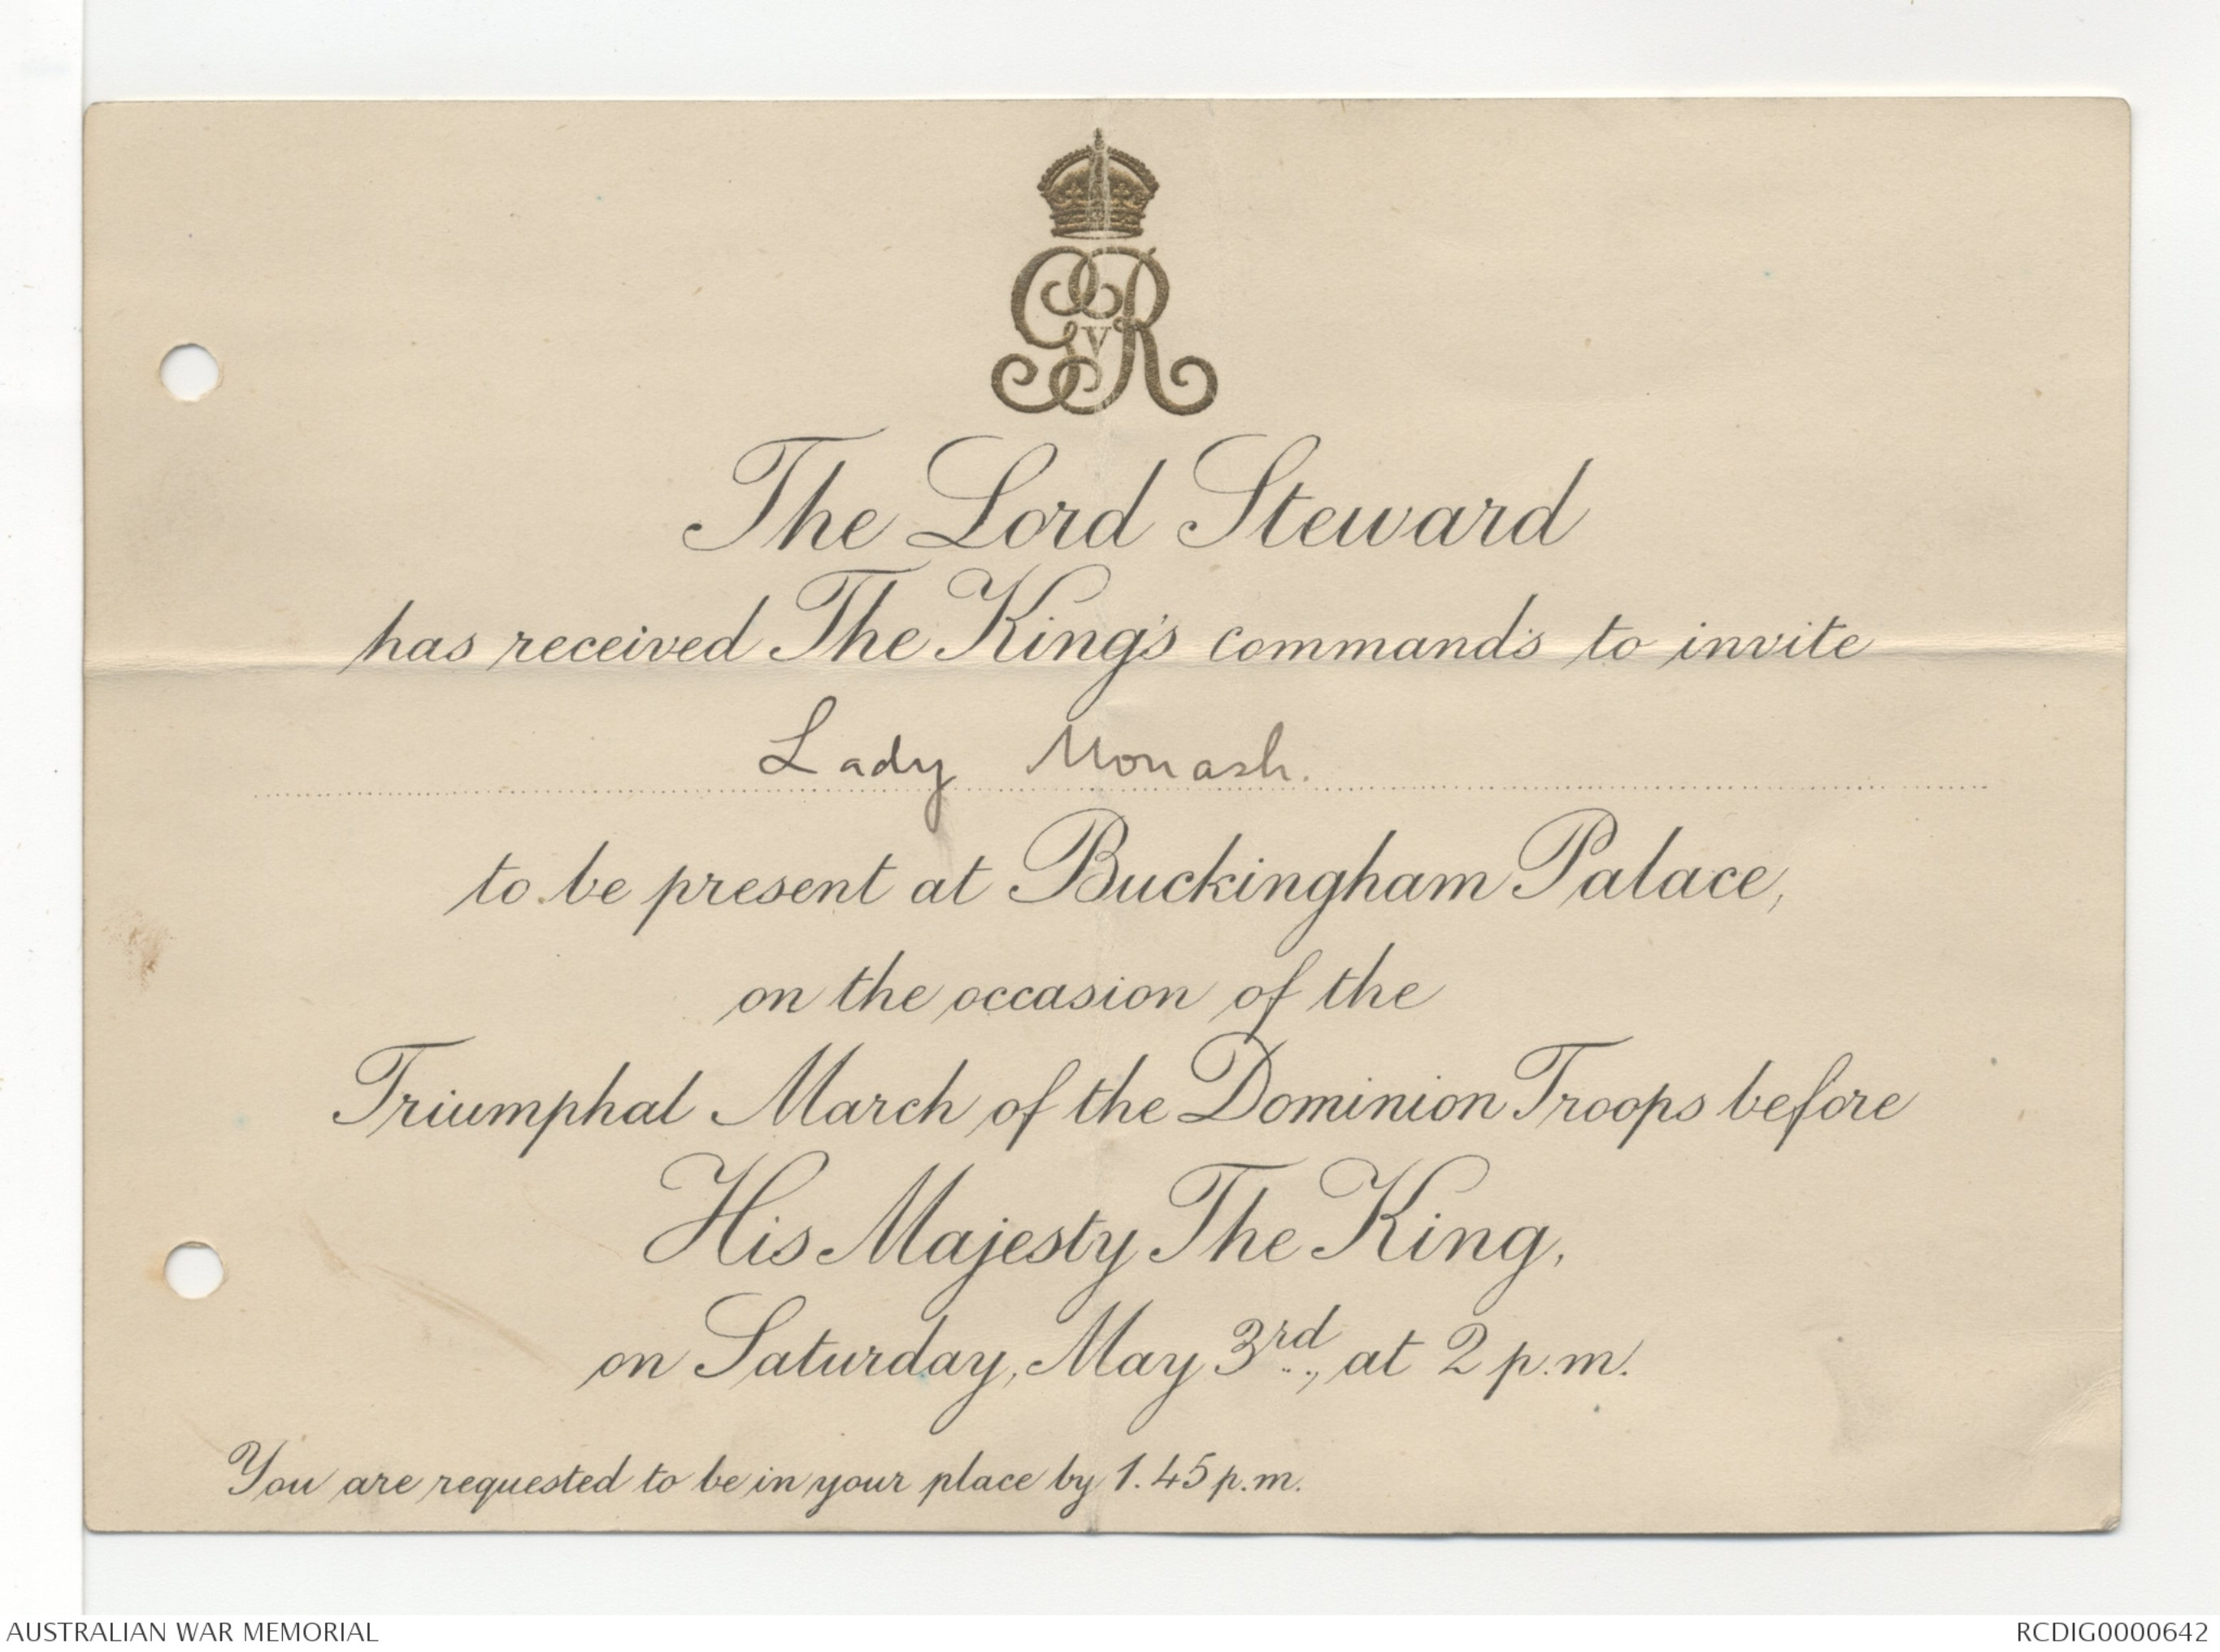 GVR
The Lord Steward
has received The King's commands to invite
Lady Monash.
to be present at Buckingham Palace,
on the occasion of the
Triumphal March of the Dominion Troops before
His Majesty The King,
on Saturday, May 3rd, at 2 p.m.
You are requested to be in your place by 1.45 p.m.
AUSTRALIAN WAR MEMORIAL
RCDIG0000642